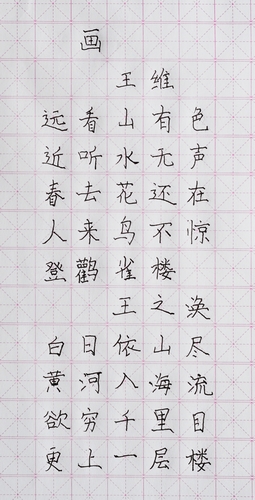 画
王维
远看山有色
近听水无声
春去花还在
人来鸟不惊
登鸛雀楼
王之涣
白日依山尽
黄河入海流
欲穷千里目
更上一层楼